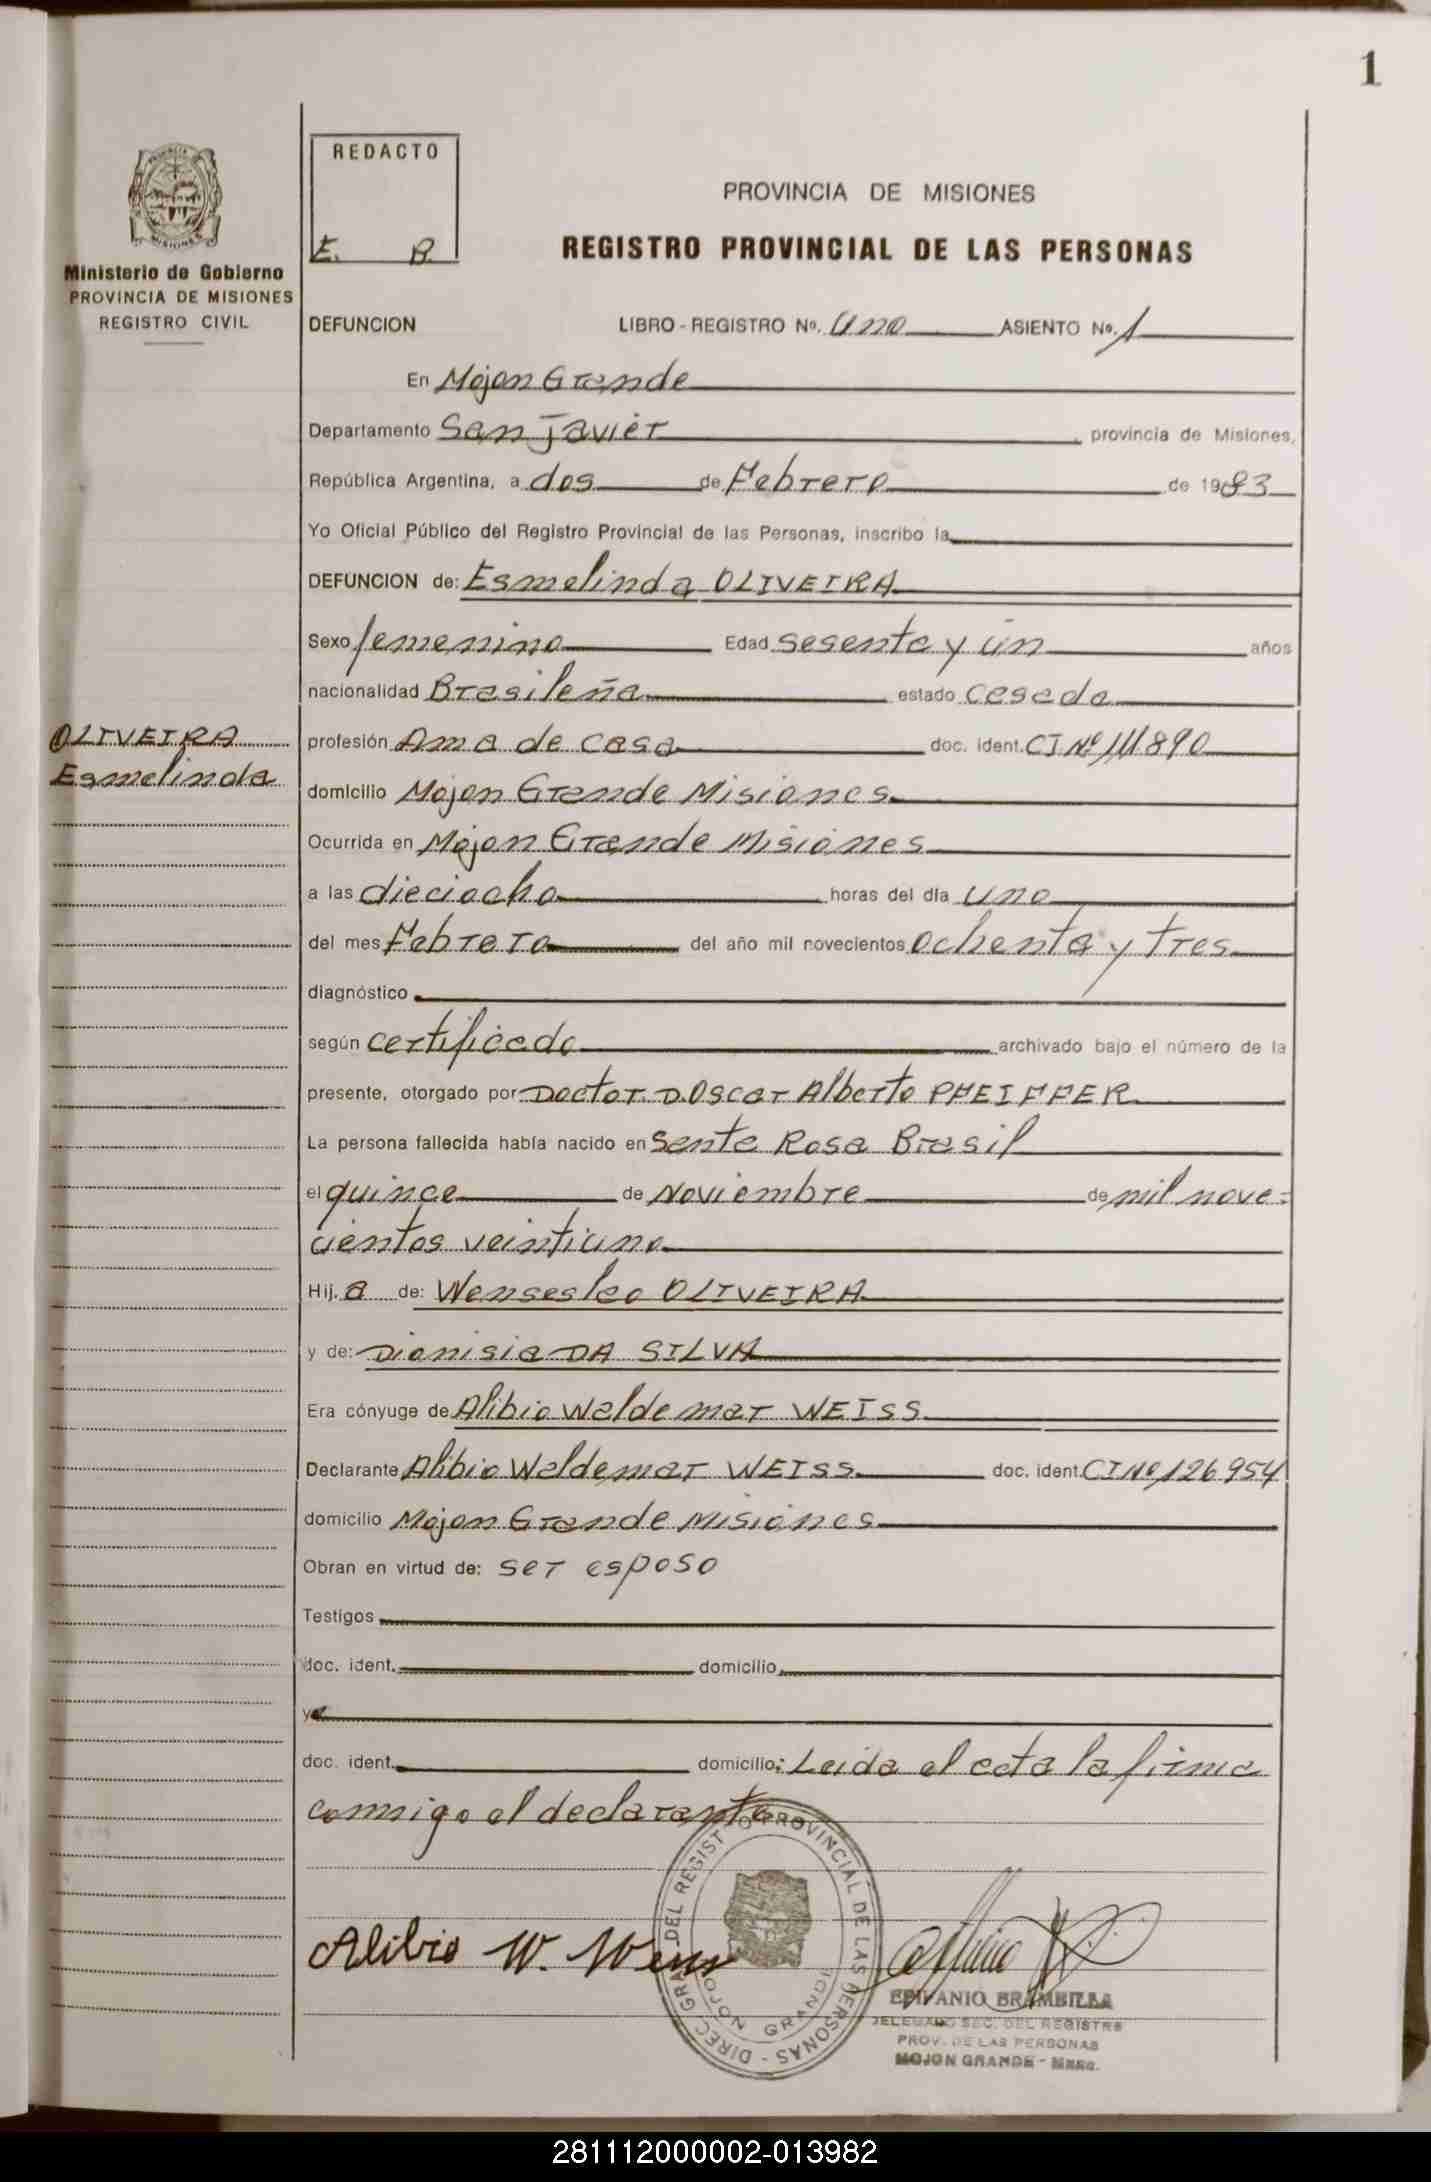 1
REDACTO
E. B.
Ministerio de Gobierno
PROVINCIA DE MISIONES
REGISTRO CIVIL
PROVINCIA DE MISIONES
REGISTRO PROVINCIAL DE LAS PERSONAS
DEFUNCION LIBRO - REGISTRO Nº. Uno ASIENTO Nº. 1
En Mojon Grande
Departamento San Javier provincia de Misiones,
República Argentina, a dos de Febrero de 1983
Yo Oficial Público del Registro Provincial de las Personas, inscribo la
DEFUNCION de: Esmelinda OLIVEIRA
Sexo femenino Edad sesenta y un años
nacionalidad Brasileña estado casada
OLIVEIRA
Esmelinda
profesión Ama de casa doc. ident. CI Nº 111890
domicilio Mojon Grande Misiones
Ocurrida en Mojon Grande Misiones
a las dieciocho horas del día uno
del mes Febrero del año mil novecientos ochenta y tres
diagnóstico
según certificado archivado bajo el número de la
presente, otorgado por Doctor D. Oscar Alberto PFEIFFER
La persona fallecida había nacido en Santa Rosa Brasil
el quince de Noviembre de mil nove=
cientos veintiuno
Hij. a de: Wenseslao OLIVEIRA
y de: Dionisia DA SILVA
Era cónyuge de Alibio Waldemar WEISS
Declarante Alibio Waldemar WEISS doc. ident. CI Nº 126954
domicilio Mojon Grande Misiones
Obran en virtud de: ser esposo
Testigos
doc. ident. domicilio
y
doc. ident. domicilio: Leida el acta la firma
conmigo el declarante
Alibio W. Weiss
DIREC. GRAL. DEL REGISTRO PROVINCIAL DE LAS PERSONAS -
MOJON GRANDE
EPIFANIO BRAMBILLA
DELEGADO SEC. DEL REGISTRO
PROV. DE LAS PERSONAS
MOJON GRANDE - Mnes.
281112000002-013982